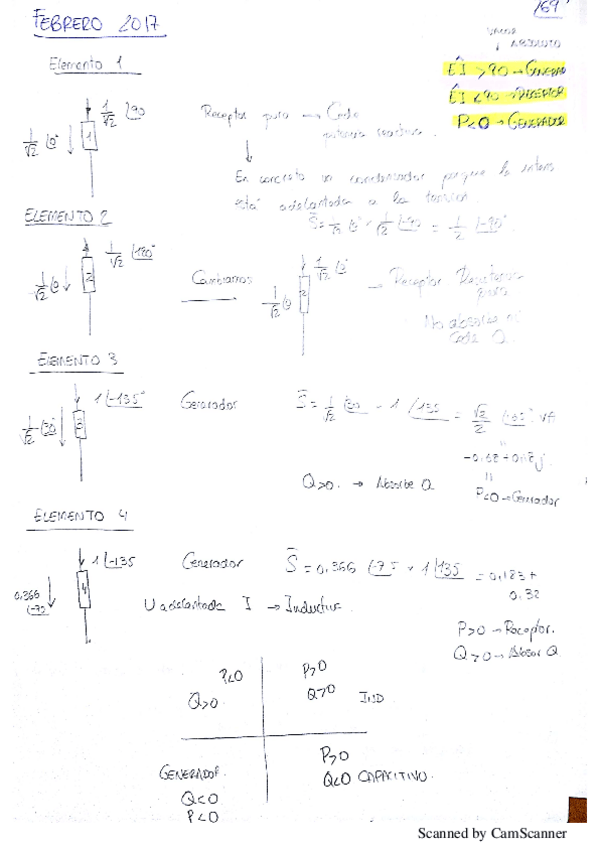 169
FEBRERO 2017
VALOR
ABSOLUTO
Elemento 1
ÊI > 90 → GENERAR
ÊI < 90 → RECEPTOR
P<0 → GENERADOR
1/√2 ∠90
1/√2 ∠0°
1
Receptor puro → Cede
potencia reactiva.
En concreto un condensador porque la intens
está adelantada a la tension.
ELEMENTO 2
S̄ = 1/√2 ∠0° × 1/√2 ∠-90 = 1/2 ∠-90°
1/√2 ∠180°
1/√2 ∠0
2
Cambiamos
1/√2 ∠0°
1/√2 ∠0
2
→ Receptor Resistencia
puro
No absorbe ni
Cede Q.
ELEMENTO 3
1 ∠-135°
1/√2 ∠30°
3
Generador
S̄ = 1/√2 ∠30 · 1 ∠135 = √2/2 ∠165° VA
-0.68+0.18j
Q>0. → Absorbe Q
P<0→Generador
ELEMENTO 4
1 ∠-135
0.366
∠-75
4
Generador
S̄ = 0.366 ∠-75 × 1 ∠135 = 0.183+
0.32
U adelantada I → Inductivo.
P>0 → Receptor.
Q>0 → Absor Q.
P<0
Q>0
P>0
Q>0 IND
GENERADOR.
Q<0
P<0
P>0
Q<0 CAPACITIVO.
Scanned by CamScanner